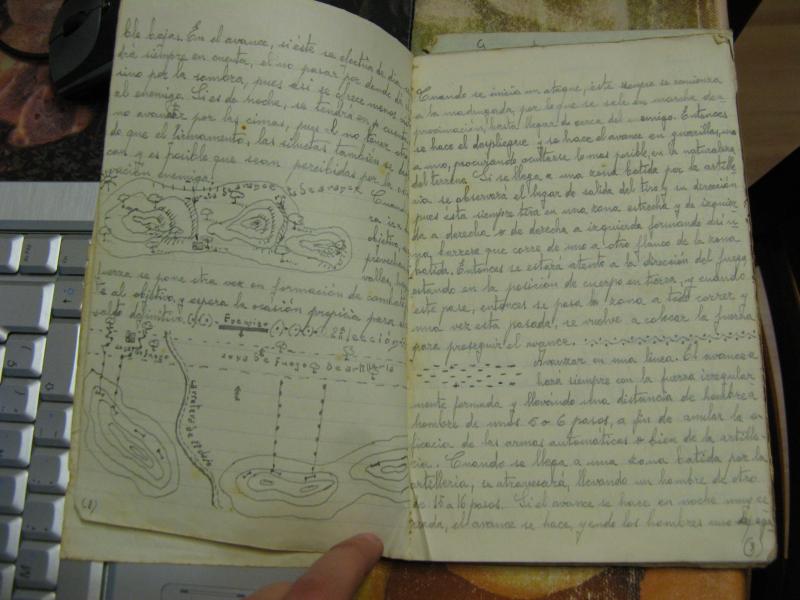 ble bajas. En el avance, si éste se efectúa de día, ten
drá siempre en cuenta, el no pasar por donde dá
sino por la sombra, pues así se ofrece menos
al enemigo. Si es de noche, se tendrá en cuenta
no avanzar por las cimas, pues al no tener
do que el firmamento, las siluetas también se
can y es posible que sean percibidas por la
vación enemiga.
Cuando
objetivo,
fuerza se pone otra vez en formación de combate
al objetivo, y espera la ocasión propicia para
salto definitivo.
Enemigo
zona de fuego de artillería
(8)
Cuando se inicia un ataque, éste siempre se comienza
a la madrugada, por lo que se sale en marcha de a-
proximación, hasta llegar de cerca del enemigo. Entonces
se hace el despliegue y se hace el avance en guerrillas, uno
a uno, procurando ocultarse lo mas posible, en la naturaleza
del terreno. Si se llega a una zona batida por la artille-
ría se observará el lugar de salida del tiro y su dirección
pues ésta siempre tira en una zona estrecha y de izquier-
da a derecha o de derecha a izquierda formando así u-
na barrera que corre de uno a otro flanco de la zona
batida. Entonces se estará atento a la dirección del fuego
estando en la posición de cuerpo en tierra, y cuando
este pase, entonces se pasa la zona a todo correr y
una vez esta pasada, se vuelve a colocar la fuerza
para proseguir el avance.
Avanzar en una linea. El avance se
hará siempre con la fuerza irregular
mente formada y llevando una distancia de hombre a
hombre de unos 5 o 6 pasos, a fin de anular la e-
ficacia de las armas automáticas o bien de la artille-
ría. Cuando se llega a una zona batida por la
artillería, se atravesará, llevando un hombre de otro
de 15 a 16 pasos. Si el avance se hace en noche muy ce
rrada, el avance se hace, yendo los hombres uno
(9)